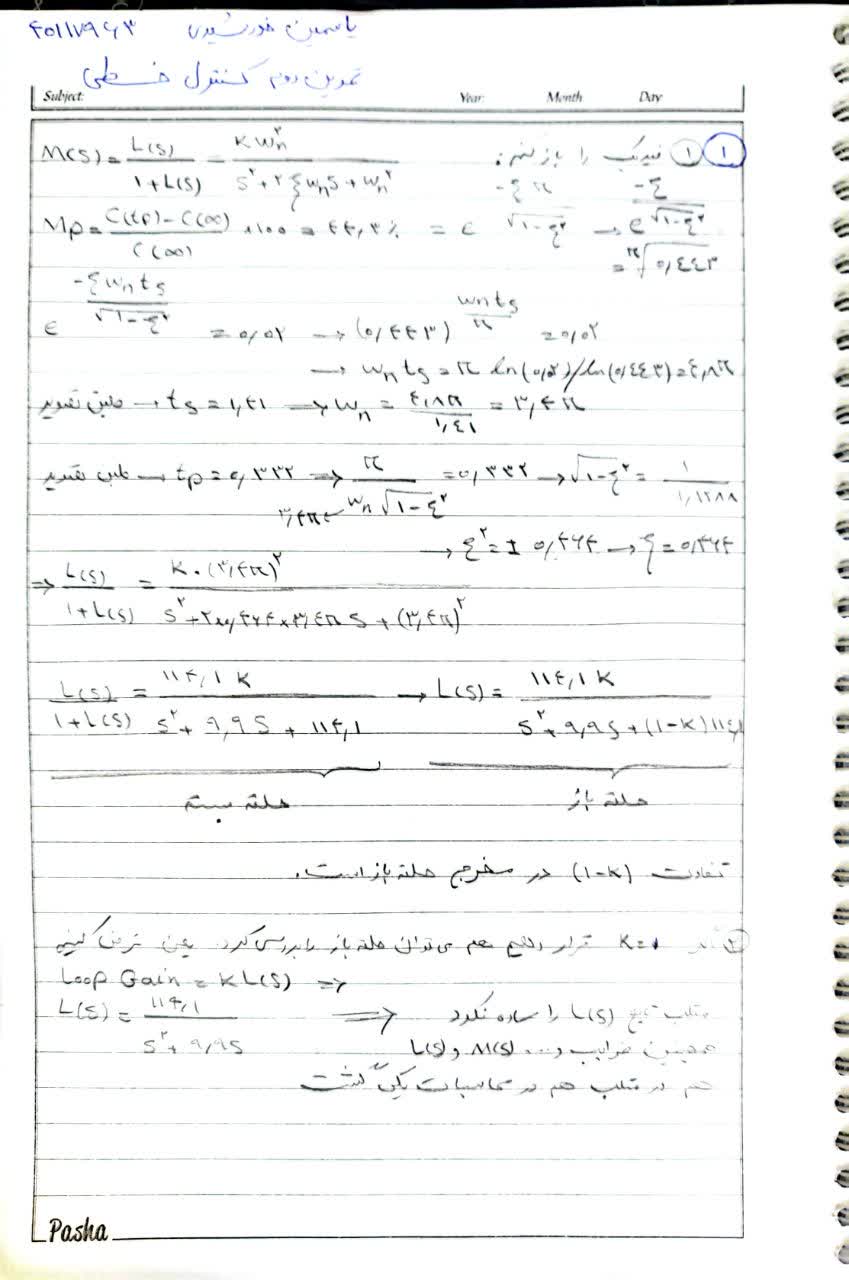 یاسمین خورشیدی ۴۰۱۱۷۹۶۳
تمرین دوم کنترل خطی
Subject: Year: Month Day
۱ ۱ فیدبک را باز کنیم:
M(s) = L(s) / 1+L(s) = Kωn² / s²+۲ξωns+ωn²
Mp = C(tp) - C(∞) / C(∞) × ۱۰۰ = ۴۴,۳٪ = e^(-ξπ/√1-ξ²) → e^(-ξ/√1-ξ²) = π√۰,۴۴۳
e^(-ξωnts/√1-ξ²) = ۰,۰۲ → (۰,۴۴۳)^(ωnts/π) = ۰,۰۲
→ ωnts = π ln(۰,۰۲)/ln(۰,۴۴۳) = ۴,۸π
طبق تصویر → ts = ۱,۴۱ → ωn = ۴,۸π / ۱,۴۱ = ۳,۴π
طبق تصویر → tp = ۰,۳۳۲ → π / ωn√1-ξ² = ۰,۳۳۲ → √1-ξ² = ۱ / ۱,۱۲۸۸
۳,۴π
→ ξ² = ± ۰,۴۶۴ → ξ = ۰,۴۶۴
⇒ L(s) / 1+L(s) = K.(۳,۴π)² / s²+۲×۰,۴۶۴×۳,۴π s + (۳,۴π)²
L(s) / 1+L(s) = ۱۱۴,۱ K / s² + ۹,۹s + ۱۱۴,۱ → L(s) = ۱۱۴,۱ K / s² + ۹,۹s + (1-K)۱۱۴,۱
حلقه بسته حلقه باز
تفاوت (1-K) در مخرج حلقه باز است.
۲ اگر K=۱ قرار دهیم هم می‌توان حلقه باز را بررسی کرد. یعنی فرض کنیم
Loop Gain = KL(s) ⇒
L(s) = ۱۱۴,۱ / s² + ۹,۹s ⇐ متلب تابع L(s) را ساده نکرد
همچنین ضرایب و... M(s) و L(s)
هم در متلب هم در محاسبات یکی گشت
Pasha